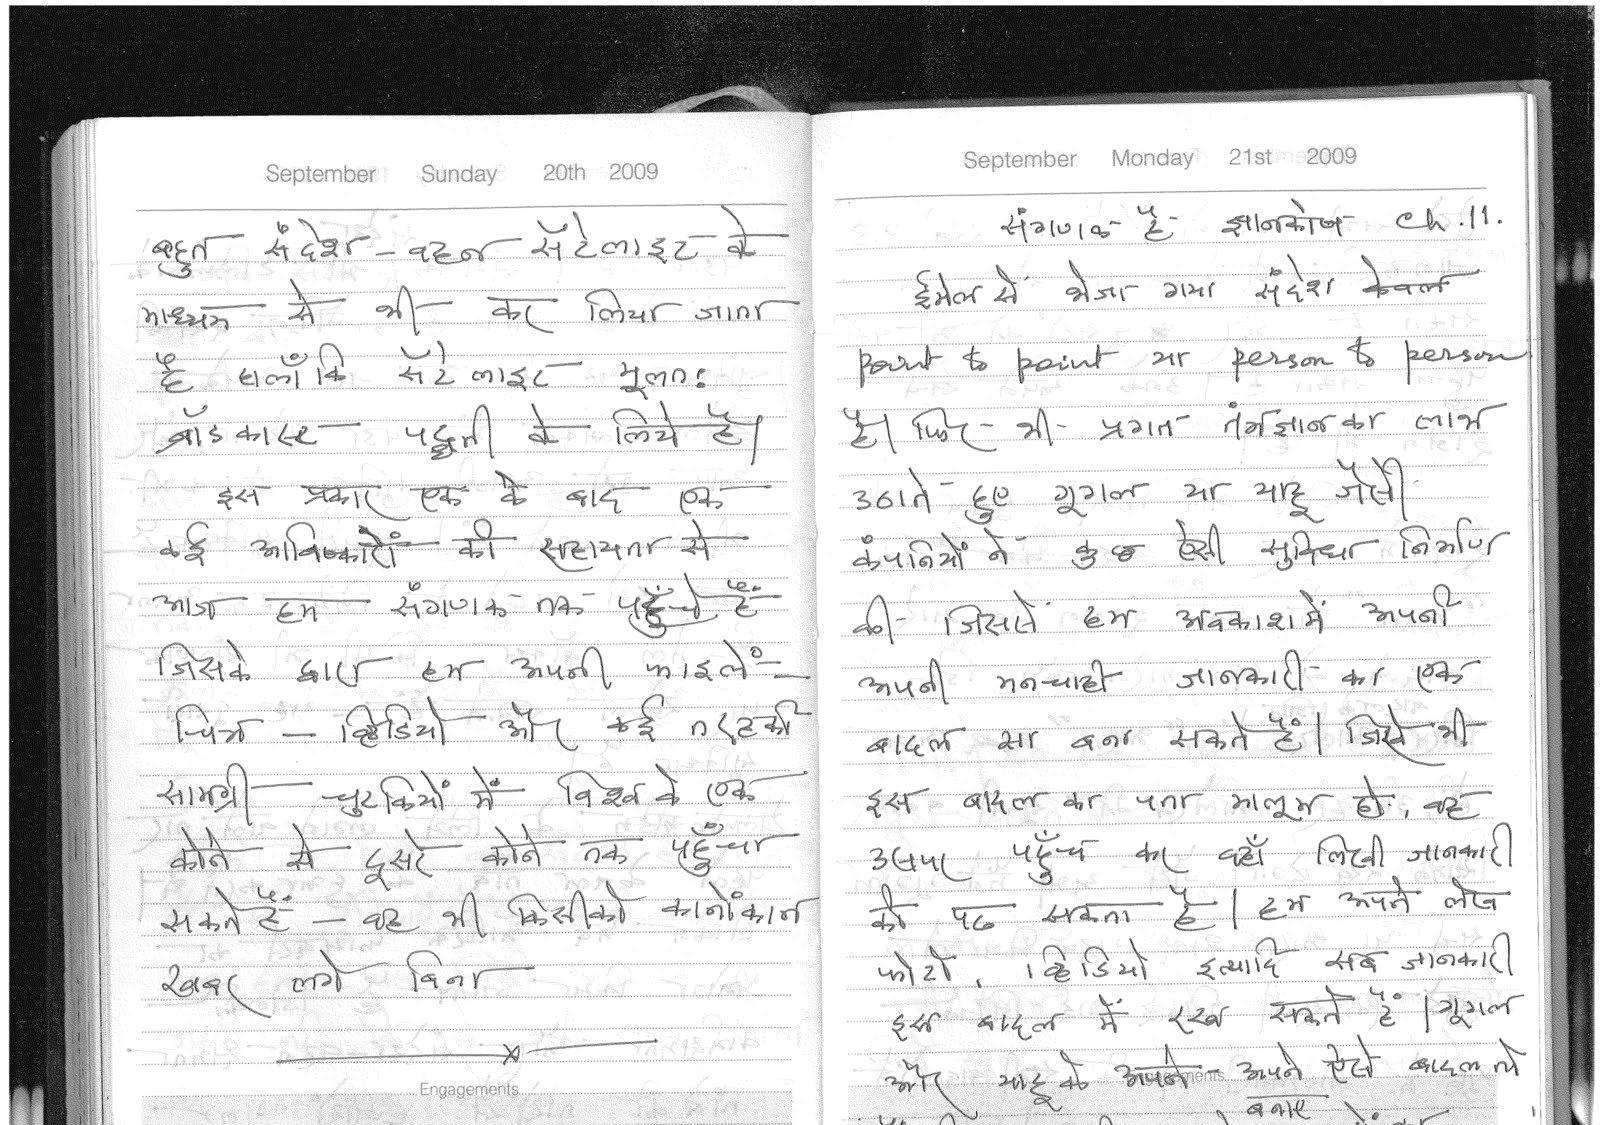 September Sunday 20th 2009
बहुत संदेश – वहन सॅटेलाइट के
माध्यम से भी कर लिया जाता
है हालाँकि सॅटेलाइट मूलतः
ब्रॉडकास्ट पद्धती के लिये है।
इस प्रकार एक के बाद एक
कई आविष्कारों की सहायता से
आज हम संगणक तक पहुँचे हैं
जिसके द्वारा हम अपनी फाइलें –
चित्र – व्हिडियो और कई तरहकी
सामग्री चुटकियों में विश्व के एक
कोने से दूसरे कोने तक पहुँचा
सकते हैं – वह भी किसीको कानोंकान
खबर लगे बिना
Engagements
September Monday 21st 2009
संगणक है ज्ञानकोष Ch. 11.
ईमेल से भेजा गया संदेश केवल
point to point या person to person
है। फिर भी प्रगत तंत्रज्ञान का लाभ
उठाते हुए गूगल या याहू जैसी
कंपनियों ने कुछ ऐसी सुविधा निर्माण
की जिससे हम अवकाश में अपनी
अपनी मनचाही जानकारी का एक
बादल सा बना सकते हैं। जिसे भी
इस बादल का पता मालूम हो, वह
उसपर पहुँच कर वहाँ लिखी जानकारी
को पढ सकता है। हम अपने लेख
फोटो, व्हिडियो इत्यादि सब जानकारी
इस बादल में रख सकते हैं। गूगल
और याहू के अपने अपने ऐसे बादल तो
बनाए